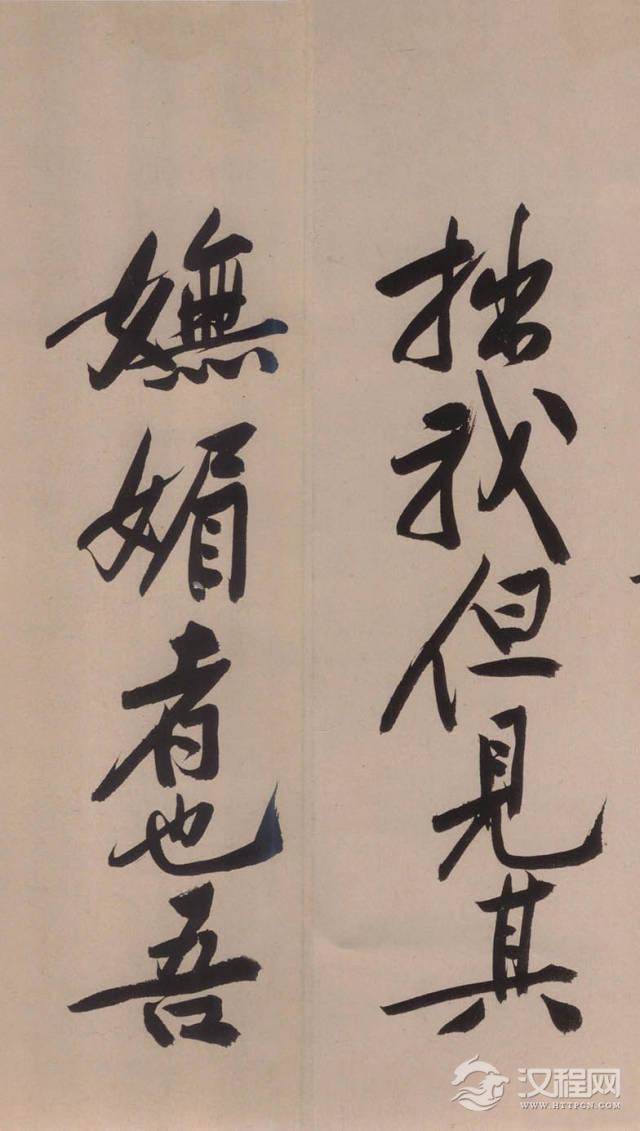 拙我但見其
嫵媚者也吾
汉程网
WWW.HTTPCN.COM